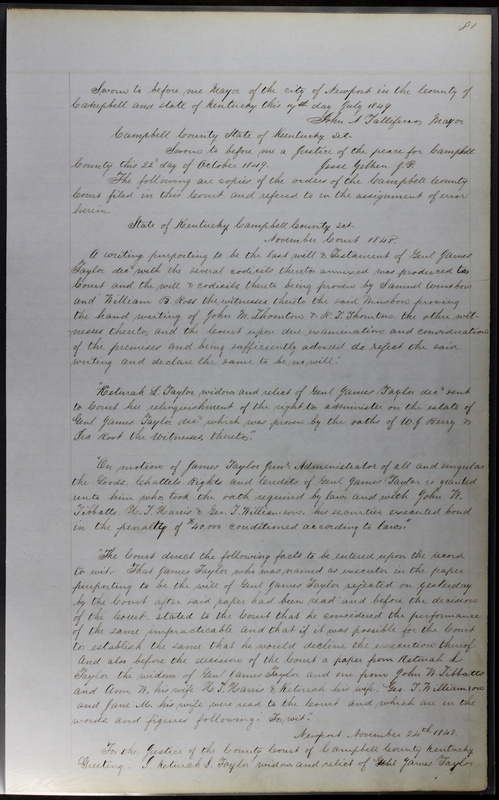 81
Sworn to before me Mayor of the city of Newport in the County of
Campbell and state of Kentucky this 7th day July 1849
John N Talliferro Mayor
Campbell County State of Kentucky Sct.
Sworn to before me a Justice of the peace for Campbell
County this 22d day of October 1849. Jesse Yelken J.P.
The following are copies of the orders of the Campbell County
Court filed in this Court and refered to in the assignment of error
herein.
State of Kentucky Campbell County sct.
November Court 1848.
A writing purporting to be the last will & Testament of Genl James
Taylor decd with the several codicils thereto annexed was produced to
Court and the will & codicils thereto being proven by Samuel Winston
and William B. Ross the witnesses thereto the said Winston proving
the hand writing of John M. Thornton & H. T. Thornton the other wit-
nesses thereto, and the Court upon due examination and consideration
of the premises and being sufficiently advised do reject the said
writing and declare the same to be no will."
"Keturah L. Taylor widow and relict of Genl James Taylor decd sent
to Court her relinquishment of the right to administer on the estate of
Genl James Taylor decd which was proven by the oaths of W. J. Berry &
Ira Root the Witnesses thereto."
"On motion of James Taylor Junr Administrator of all and singular
the Goods, Chattels Rights and Credits of Genl James Taylor is granted
unto him who took the oath required by law and with John W.
Tibbatts, H. T. Harris & Geo. T. Williamson, his securities executed bond
in the penalty of $40.000 conditioned according to law."
"The Court direct the following facts to be entered upon the record
to wit- That James Taylor who was named as executor in the paper
purporting to be the will of Genl James Taylor rejected on yesterday
by the Court after said paper had been read and before the decision
of the Court, stated to the Court that he considered the performance
of the same impracticable and that if it was possible for the Court
to establish the same that he would decline the execution thereof.
And also before the decision of the Court a paper from Keturah L
Taylor the widow of Genl James Taylor and one from John W. Tibbatts
and Ann W. his wife H T. Harris & Keturah his wife, Geo. T. Williamson
and Jane M. his wife were read to the Court and which are in the
words and figures following. To wit."
Newport November 24th 1848.
To the Justice of the County Court of Campbell County Kentucky
Greeting. I Keturah L. Taylor widow and relict of Genl James Taylor